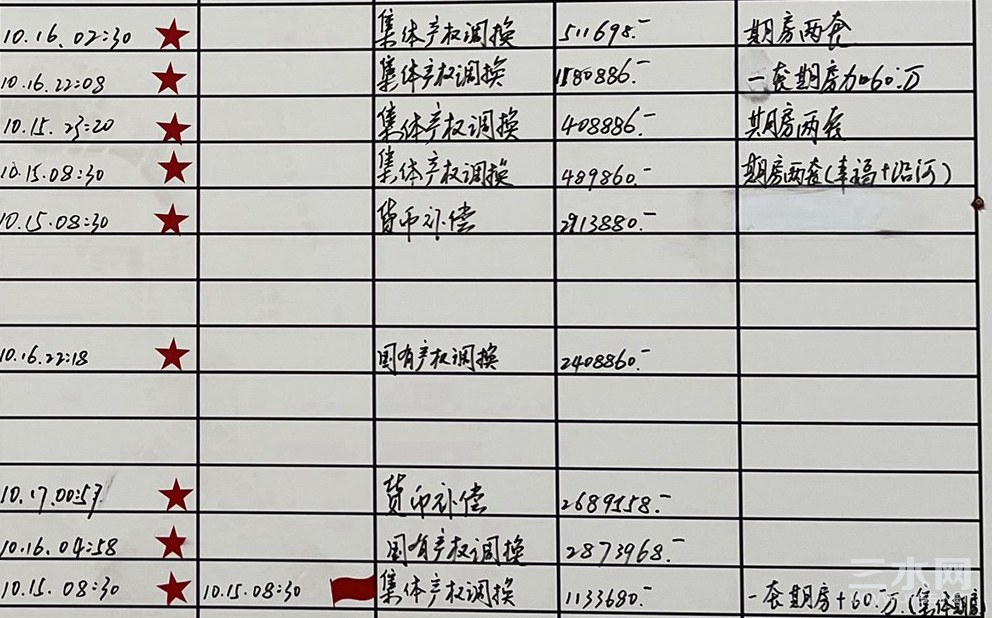 10.16.02:30 集体产权调换 511698.- 期房两套
10.16.22:08 集体产权调换 1580886.- 一套期房加60.万
10.15.23:20 集体产权调换 408886.- 期房两套
10.15.08:30 集体产权调换 489860.- 期房两套(幸福+沿河)
10.15.08:30 货币补偿 2913880.-
10.16.22:18 国有产权调换 2408860.-
10.17.00:57 货币补偿 2689158.-
10.16.04:58 国有产权调换 2873968.-
10.15.08:30 10.15.08:30 集体产权调换 1133680.- 一套期房+60.万.(集体期房
三水网